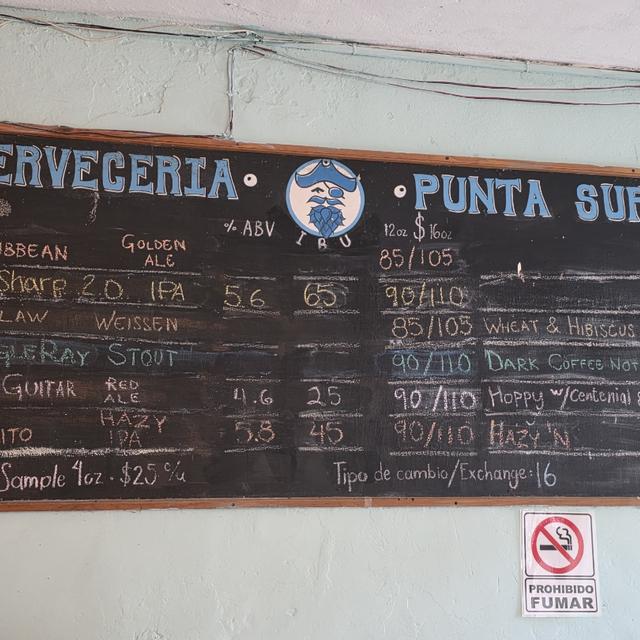 ERVECERIA • • PUNTA SUR
% ABV IBU 12oz $ 16oz
IBBEAN GOLDEN ALE 85/105
Sharp 2.0. IPA 5.6 65 90/110
LAW WEISSEN 85/105 WHEAT & HIBISCUS
GLERAY STOUT 90/110 DARK COFFEE NOT
GUITAR RED ALE 4.6 25 90/110 Hoppy w/Centenial &
ITO HAZY IPA 5.8 45 90/110 HAZY 'N
Sample 4oz . $25 c/u
Tipo de cambio/Exchange: 16
PROHIBIDO
FUMAR